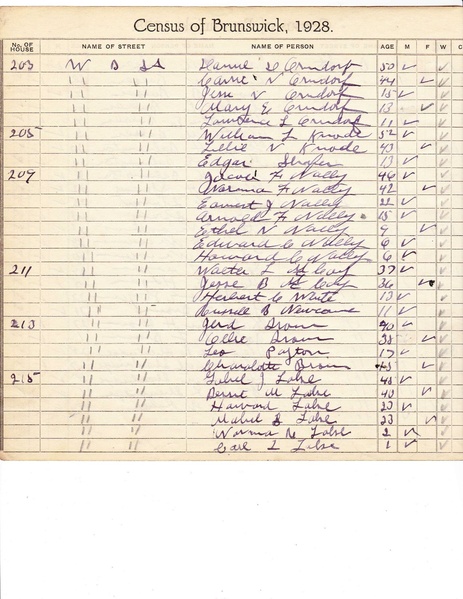 Census of Brunswick, 1928.
No. OF HOUSE NAME OF STREET NAME OF PERSON AGE M F W C
203 W B St D Orndorf 50 ✓ ✓
" " Carrie V Orndorf 44 ✓ ✓
" " V Orndorf 15 ✓ ✓
" " Mary E Orndorf 13 ✓ ✓
" " Lawrence L Orndorf 11 ✓ ✓
205 " " William L Knode 52 ✓ ✓
" " Lillie V Knode 43 ✓ ✓
" " Edgar 13 ✓ ✓
207 " " F Nally 46 ✓ ✓
" " Norma F Nally 42 ✓ ✓
" " Earnest J Nally 22 ✓ ✓
" " Arnold F Nally 15 ✓ ✓
" " Ethel N Nally 9 ✓ ✓
" " Edward C Nally 6 ✓ ✓
" " Howard C Nally 6 ✓ ✓
211 " " Walter L McCoy 37 ✓ ✓
" " Jesse B McCoy 36 ✓ ✓
" " Herbert C White 13 ✓ ✓
" " Russell B Newcome 11 ✓ ✓
213 " " 40 ✓ ✓
" " Ellie 38 ✓ ✓
" " Leo Payton 17 ✓ ✓
" " Charalotte ✓ ✓
215 " " J Labse 48 ✓ ✓
" " M Labse 40 ✓ ✓
" " Harvard Labse 23 ✓ ✓
" " Mabel Labse 23 ✓ ✓
" " Norma R Labse 2 ✓ ✓
" " Carl L Labse 1 ✓ ✓